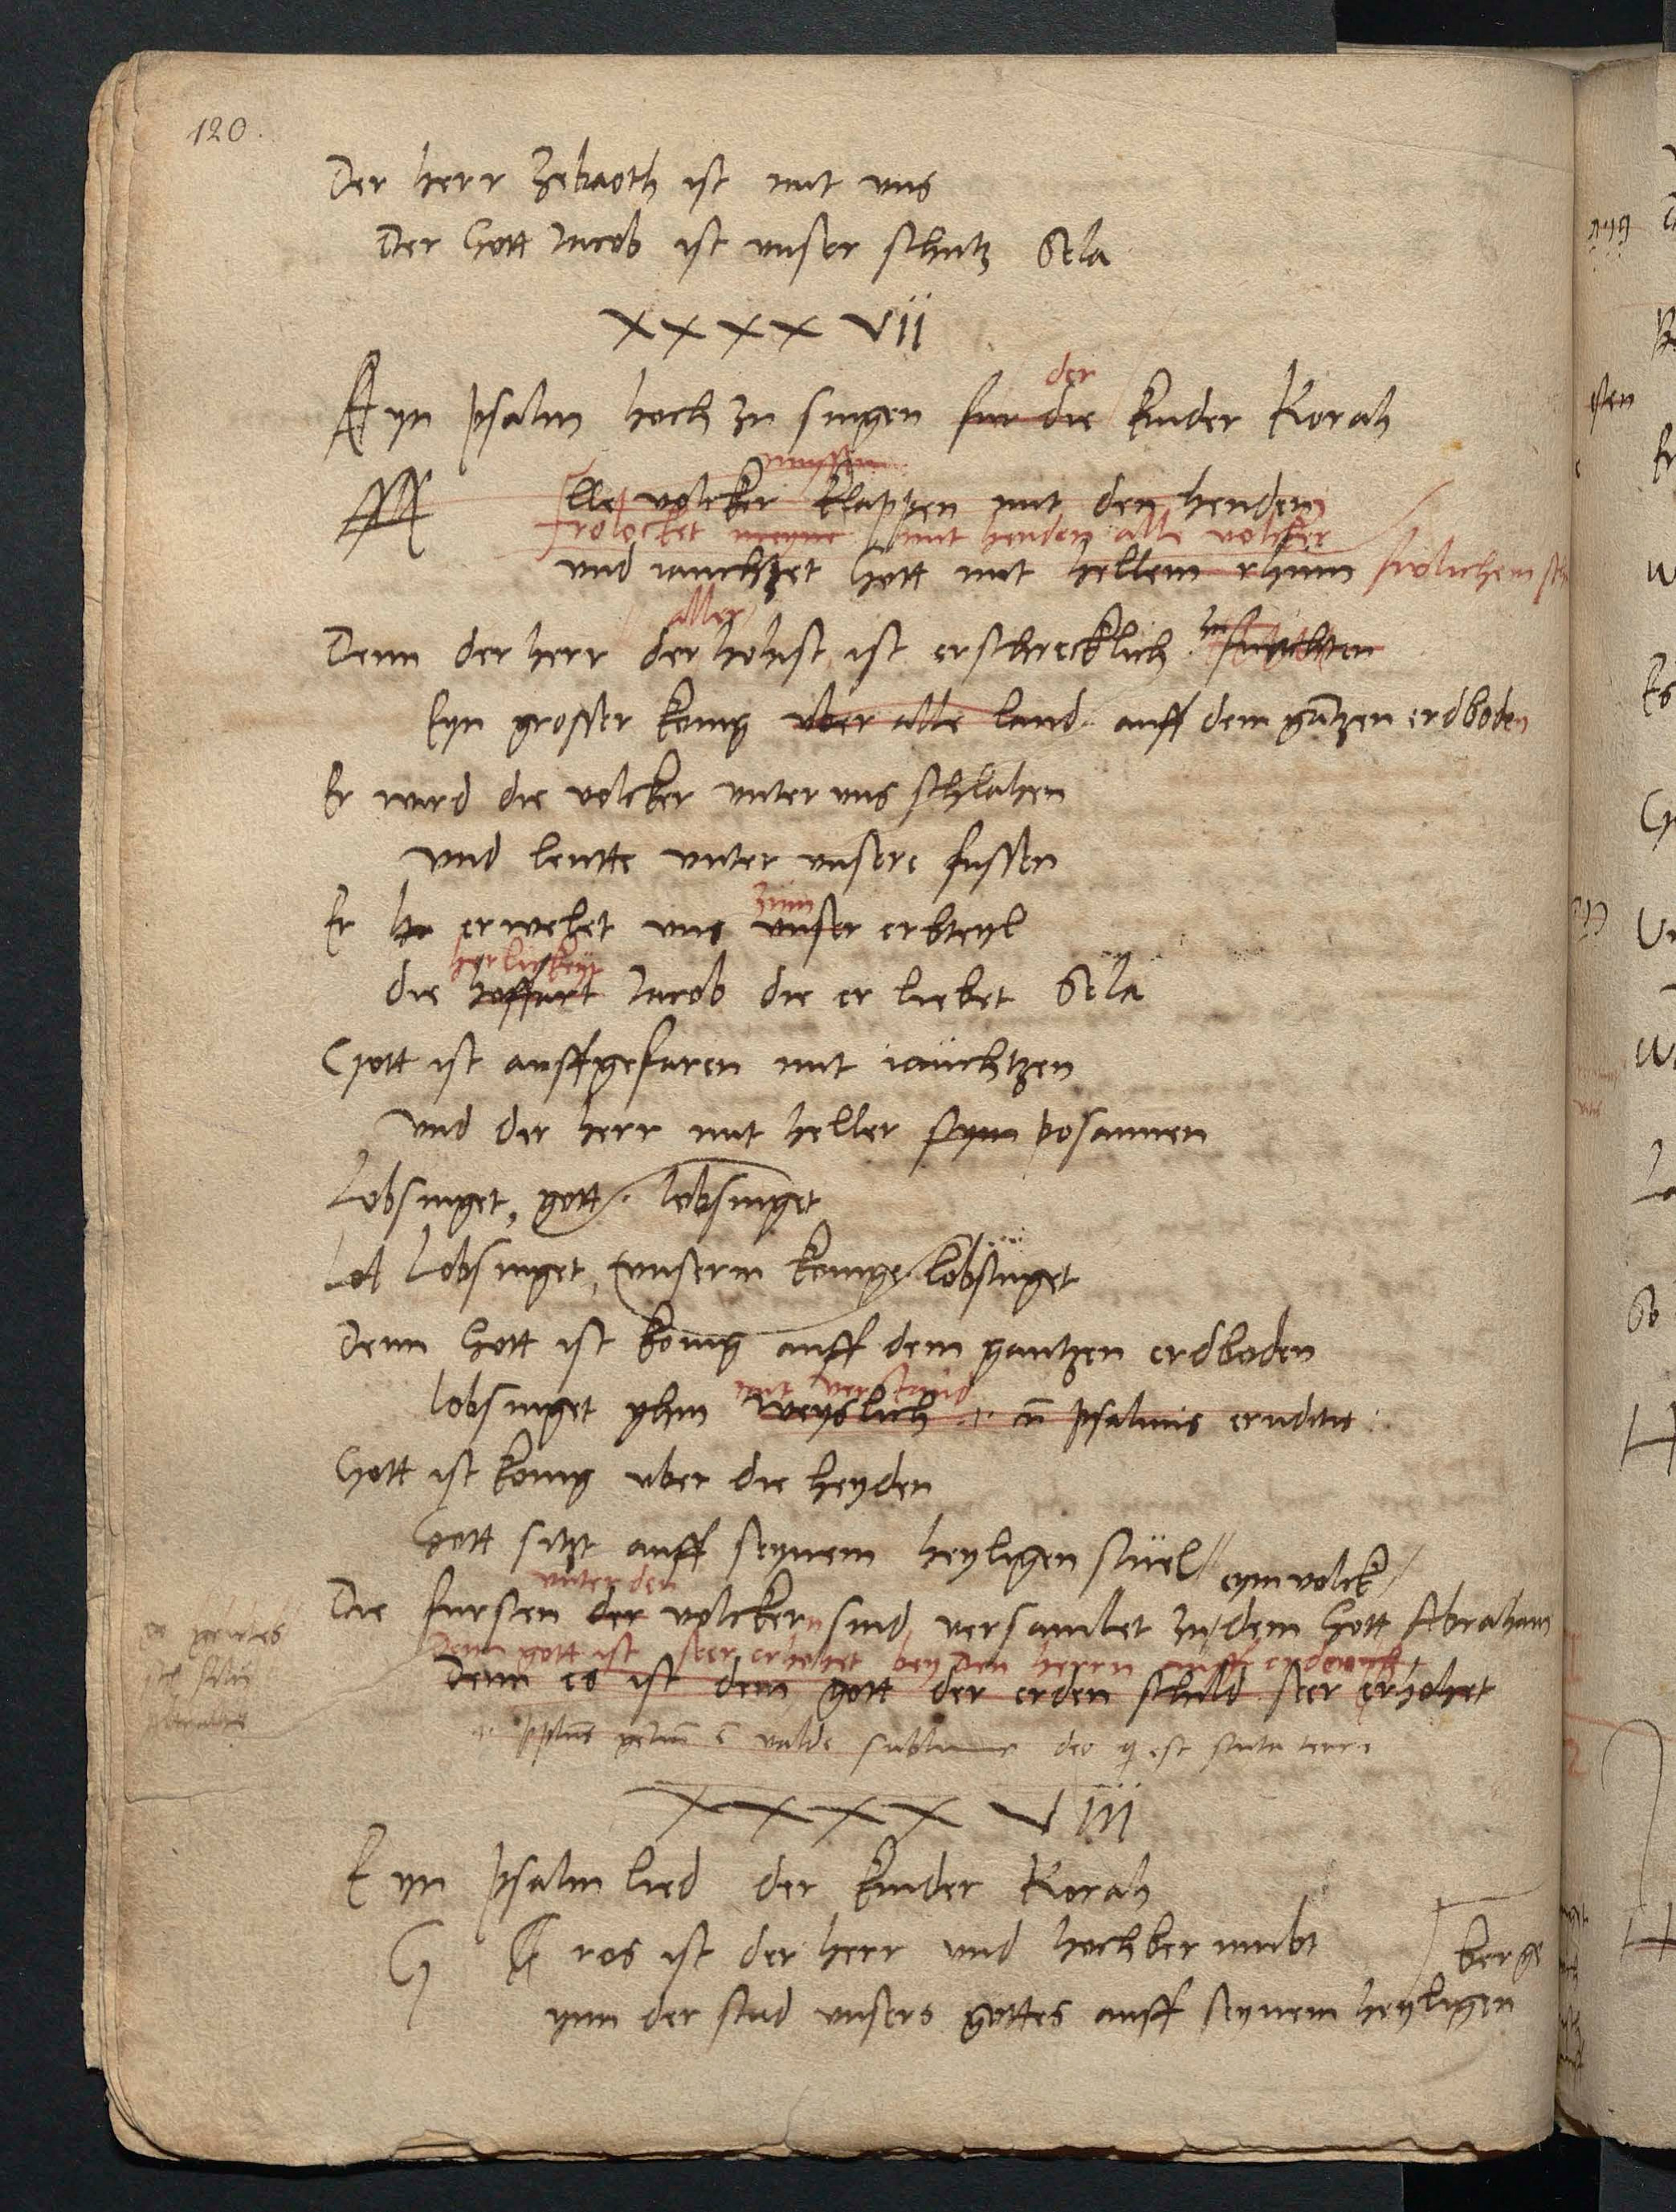 120.
Der herr Zebaoth ist mit uns
Der Gott Jacob ist unser schutz Sela
XXXX vii
der
Eyn psalm hoch zu singen fur die kinder Korah
mussen
lle volcker klappen mit den henden
frolocket meyne mit henden alle volcker
und iauchzet Gott mit hellem rhum frolichem
aller
Denn der herr der hohist ist erschrecklich zu furchten
Eyn grosser konig uber alle land auff dem gātzen erdboden
Er wird die volcker unter uns schlahen
und leutte unter unsere fussen
zum
Er hr erwelet uns unser erbteyl
herlickeyt
die hoffart Jacob die er liebet Sela
Gott ist auffgefaren mit iauchtzen
und der herr mit heller stym posaunen
Lobsinget, gott. lobsinget
Lob Lobsinget, unserm konige lobsinget
Denn Gott ist konig auff dem gantzen erdboden
mit verstand
lobsinget yhm weyslich .i. psalmis eruditis
Gott ist konig uber die heyden
Gott sitzt auff seynem heyligen stuel
eym volck
unter den
Die fursten der volckern sind versamlet zu dem Gott Abraham
Denn gott ist seer erhohet bey den herrn auff erden
Denn es ist dem gott der erden schild seer erhohet
valde sublime deo q est scuta terre
XXXX Viii
Eyn psalm lied der kinder Korah
G G ros ist der herr und hochberumbt
berge
ynn der stad unsers gottes auff seynem heyligen